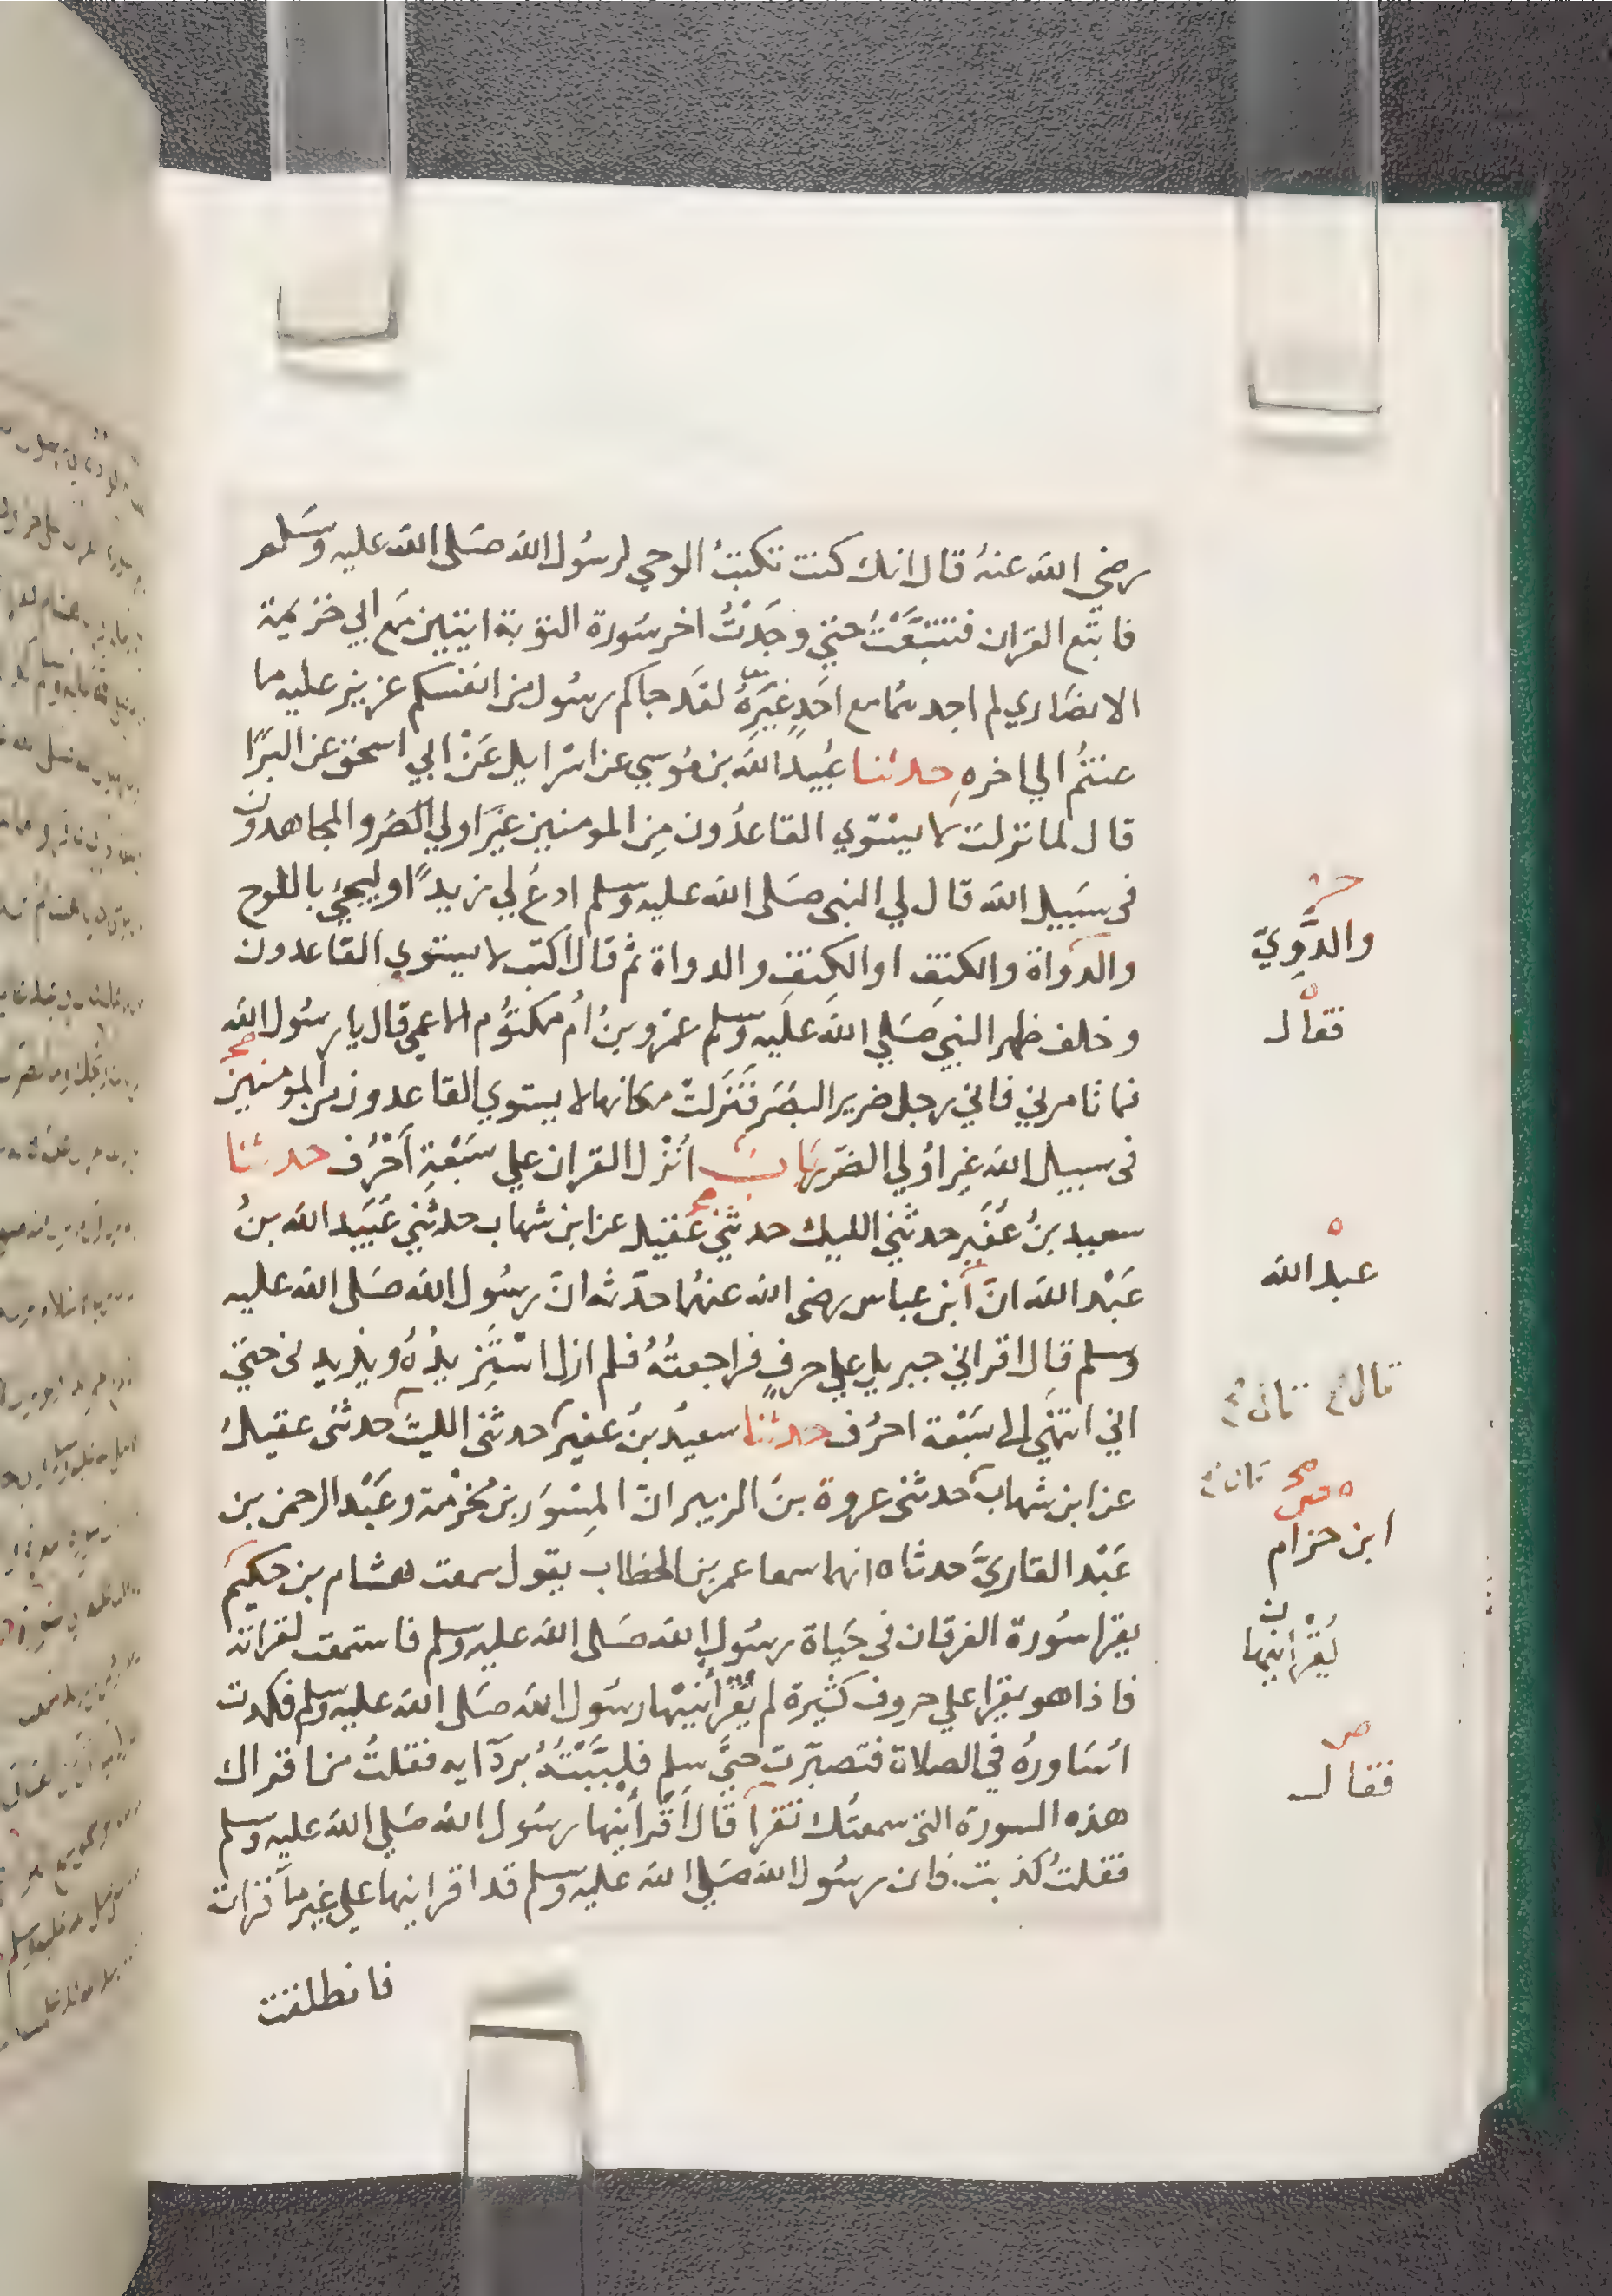 رضي الله عنهُ قال انك كنت تكتبُ الوحي لرسُول الله صَلى الله عليه وسَلم
فاتبع القران فتتبَّعْتُ حتي وجَدْتُ اخر سُورة التوبة ايتين مَع ابي خزيمة
الانصَاري لم اجدهما مع احَدٍ غيَرَهُ لقَد جاكم رسُول من انفسكم عزيز عليه ما
عنتمُ الي اخره حدثنا عُبيد الله بن مُوسي عن اسْرايل عَنْ ابي اسحق عن البرَا
قال لما نزلت لا يستوي القاعدُون مِن المومنين غيَر اولي الضرر والمجاهدون
في سَبيل الله قال لي النبي صَلى الله عليه وسلم ادعُ لي زيدًا وليجئ باللوح
والدواة والكتِفِ او الكتِفِ والدواة ثم قال اكتب لا يستوي القاعدون
وخلف ظهر النبي صَلي الله عليه وسلم عمرو بنُ اُم مكتوُم الاعمي قال يا رسُول الله
فما تامرني فاني رجل ضرير البصَر فنَزَلتْ مكانها لا يستوي القاعدون من المومنين
في سبيل الله غير اوُلي الضرر باب اُنزل القران علي سَبْعةِ أحْرُف حدثنا
سعيد بنُ عُفَير حدثني الليث حدثني عقيل عن ابن شهاب حدثني عُبَيد الله بنُ
عَبْد الله انّ ابن عباس رضي الله عنهُما حدّثه انّ رسُول الله صَلى الله عليه
وسلم قال اقراني جبريل علي حرفٍ فراجعتُهُ فلم ازل اسْتَزيدُهُ ويزيدني حتي
اني انتهَي الي سَبْعة احرُف حدثنا سعيدُ بنُ عفير حدثني الليث حدثني عقيلُ
عن ابن شهاب حدثني عروة بنُ الزبير انّ المِسْوَر بن مُخرمْة وعَبْد الرحمن بن
عَبْد القاريَّ حدثاه انهما سمعا عمر بن الخطاب يقول سمعت هشام بن حكيم
يقرا سُورة الفرقان في حَياة رسُول الله صَلى الله عليه وسلم فاستمعت لقراته
فاذا هو يقرا علي حروف كثيرة لم يُقْرأنيْها رسُول الله صَلى الله عليه وسلم فكدت
اسَاورهُ في الصلاة فتصبّرت حتَّي سلم فلبَّبْتُهُ بردايه فقلتُ من اقراك
هذه السورة التي سمعتُك تقرأ قال أقْرأنيها رسُول الله صَلي الله عليه وسلم
فقلتُ كذبت فان رسُول الله صَلي الله عليه وسلم قد اقرانيها علي غير ما قرات
فانطلقت
والدَّوِيّ
فقال
عبد الله
ابن حزام
يُقْرانيها
فقال